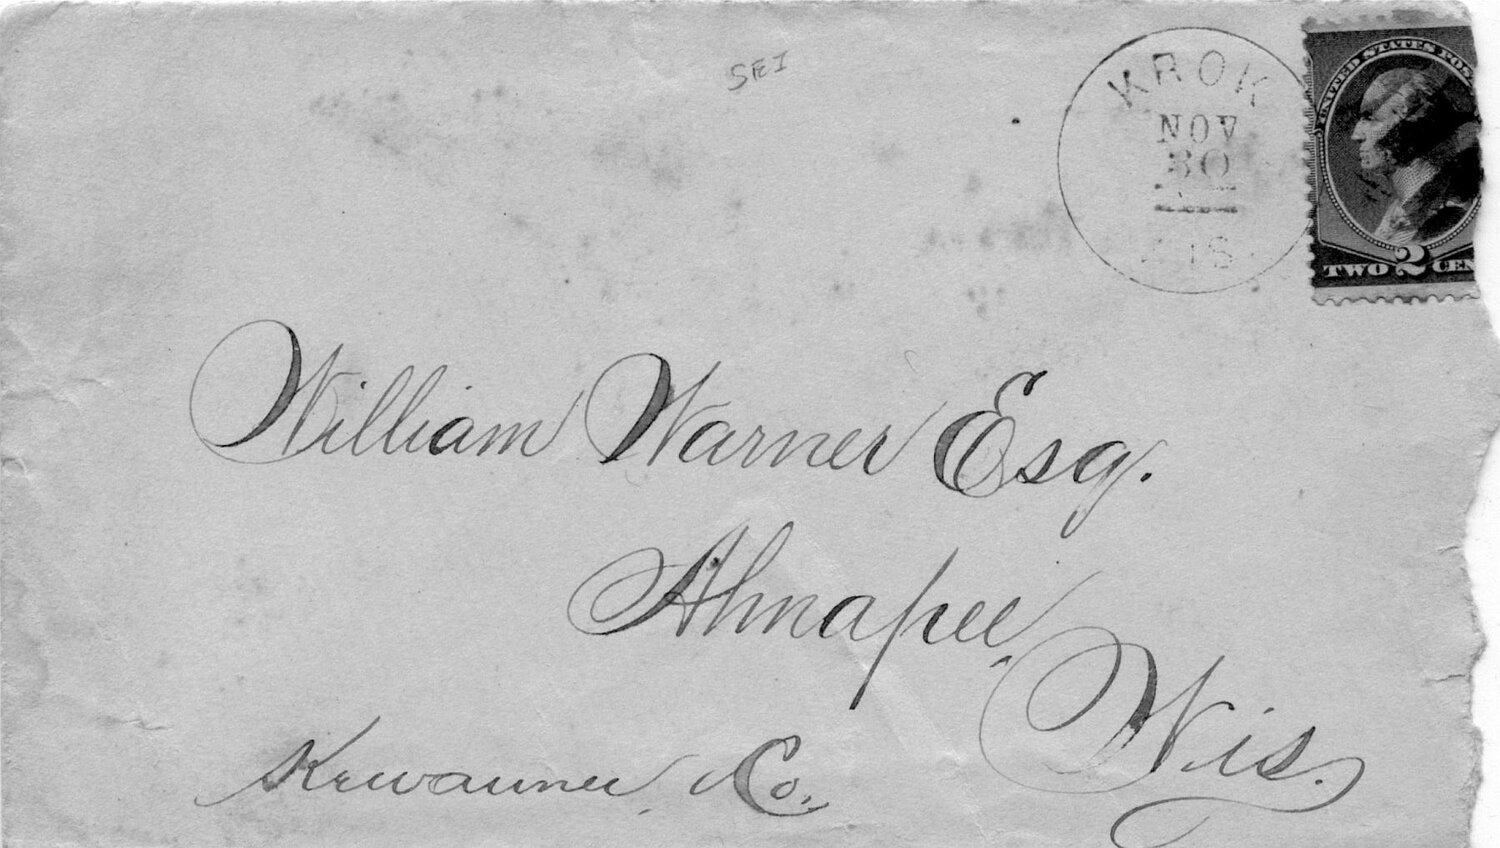 SEI
KROK
NOV
30
WIS
UNITED STATES POS
TWO 2 CEN
William Warner Esq.
Ahnapee,
Wis.
Kewaunee, Co.,